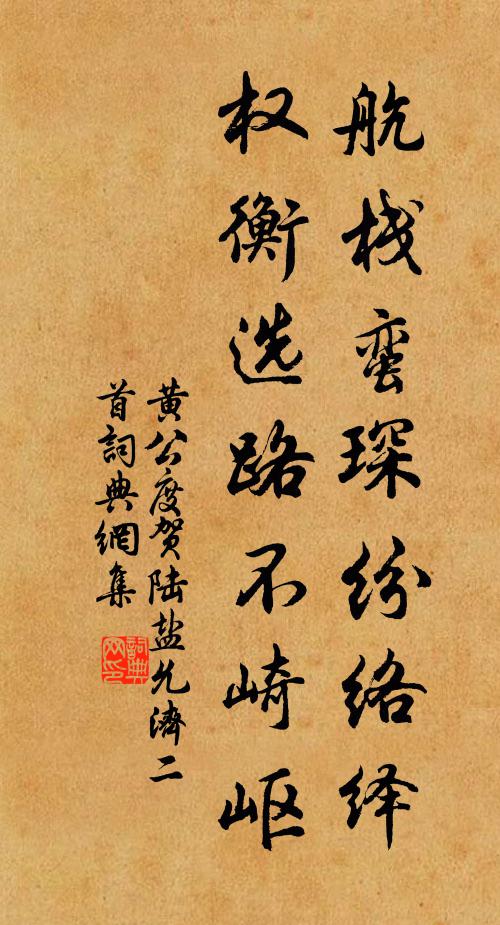 航栈蛮琛纷络绎
权衡选路不崎岖
黄公度贺陆盐允济二
首词典網集
詞典网印